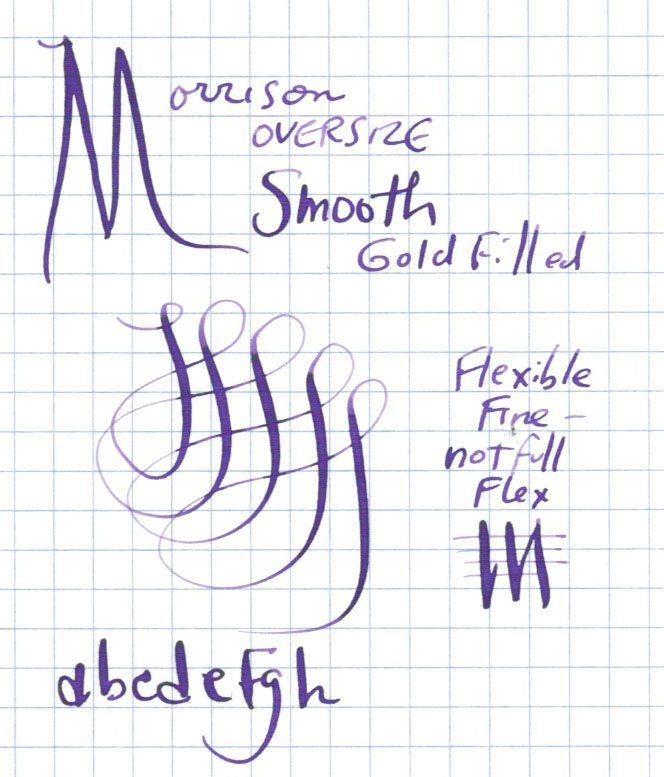 Morrison
OVERSIZE
Smooth
Gold Filled
Flexible
Fine -
not full
Flex
abcdefgh